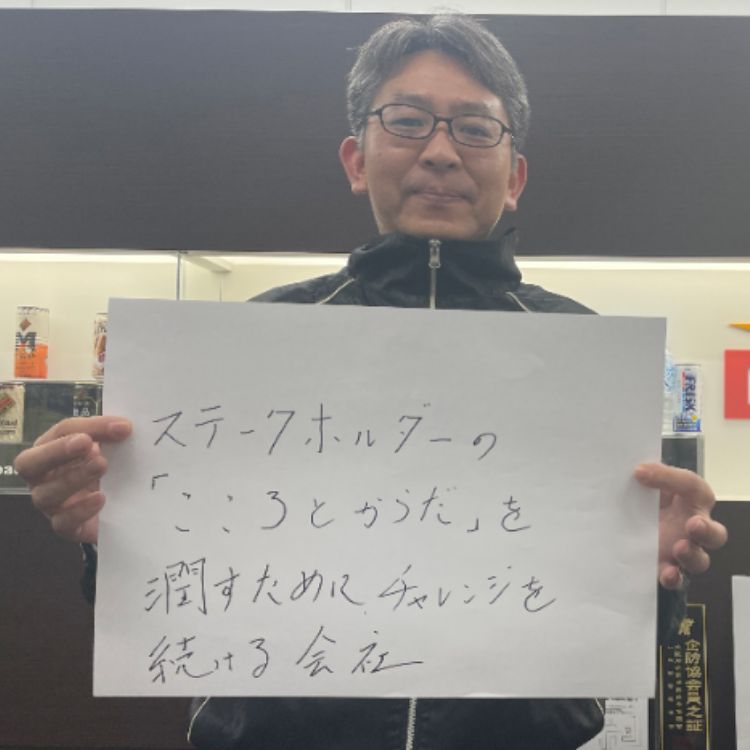 ステークホルダーの
「こころとからだ」を
潤すためにチャレンジを
続ける会社
FRISK
企防協会員之証